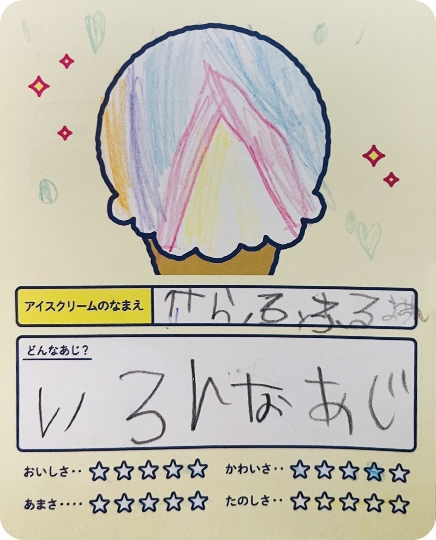 アイスクリームのなまえ
どんなあじ?
いろんなあじ
おいしさ‥ ☆☆☆☆☆ かわいさ‥ ☆☆☆☆☆
あまさ‥‥ ☆☆☆☆☆ たのしさ‥ ☆☆☆☆☆